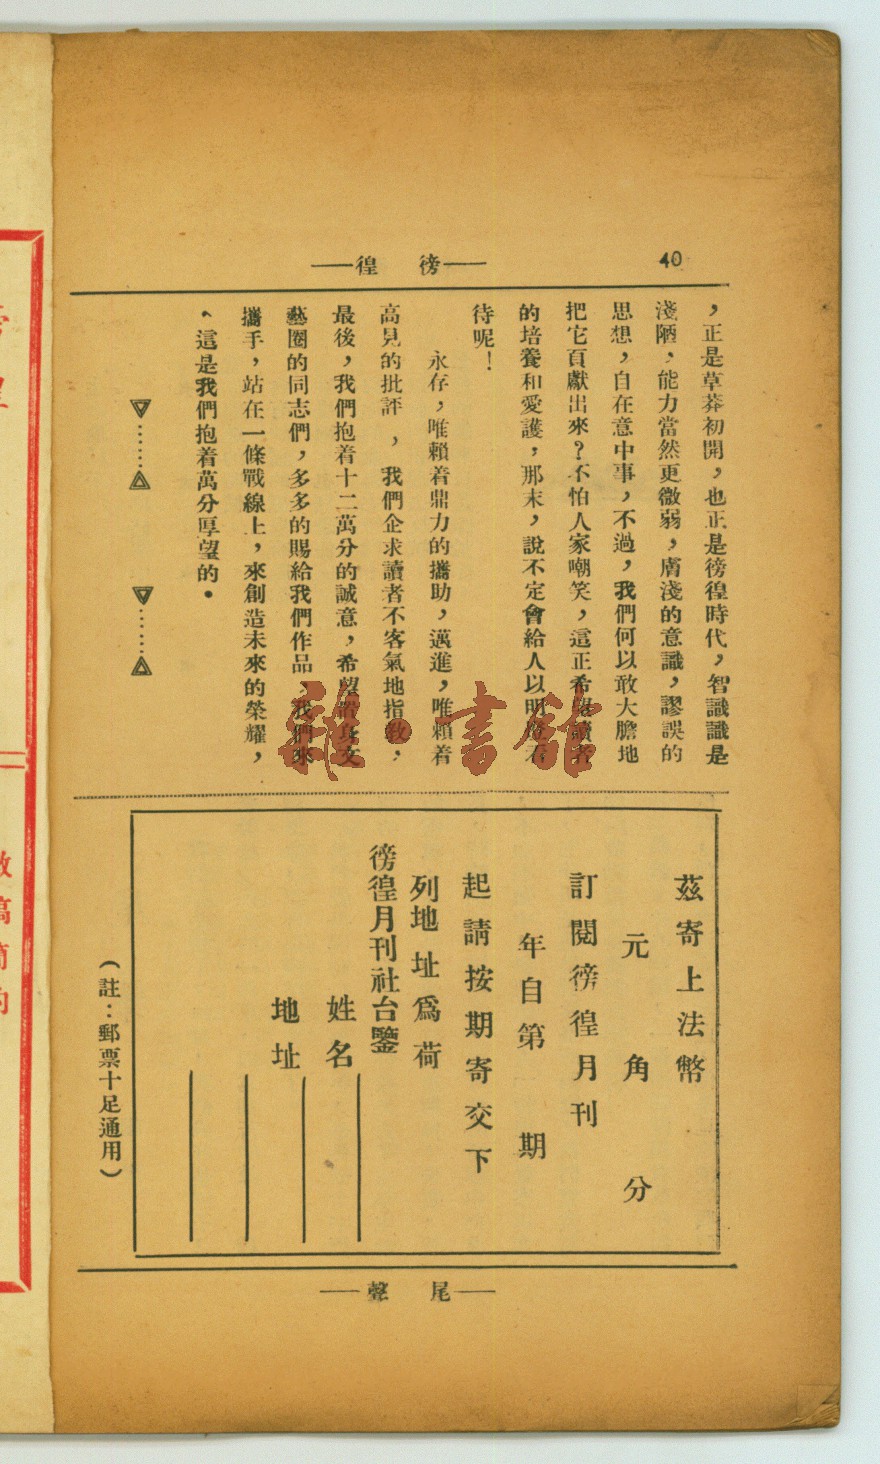 40
——徬 徨——
，正是草莽初開，也正是徬徨時代，智識識是
淺陋，能力當然更微弱，膚淺的意識，謬誤的
思想，自在意中事，不過，我們何以敢大膽地
把它頁獻出來？不怕人家嘲笑，這正希望讀者
的培養和愛護，那末，說不定會給人以明燈看
待呢！
永存，唯賴着鼎力的攜助，邁進，唯賴着
高見的批評，我們企求讀者不客氣地指教，
最後，我們抱着十二萬分的誠意，希望置身文
藝圈的同志們，多多的賜給我們作品，我們來
攜手，站在一條戰線上，來創造未來的榮耀，
、這是我們抱着萬分厚望的。
茲寄上法幣
元 角 分
訂閱徬徨月刊
年自第 期
起請按期寄交下
列地址爲荷
徬徨月刊社台鑒
姓名
地址
（註：郵票十足通用）
——尾 聲——
雜·書館
徬徨
徵稿簡約